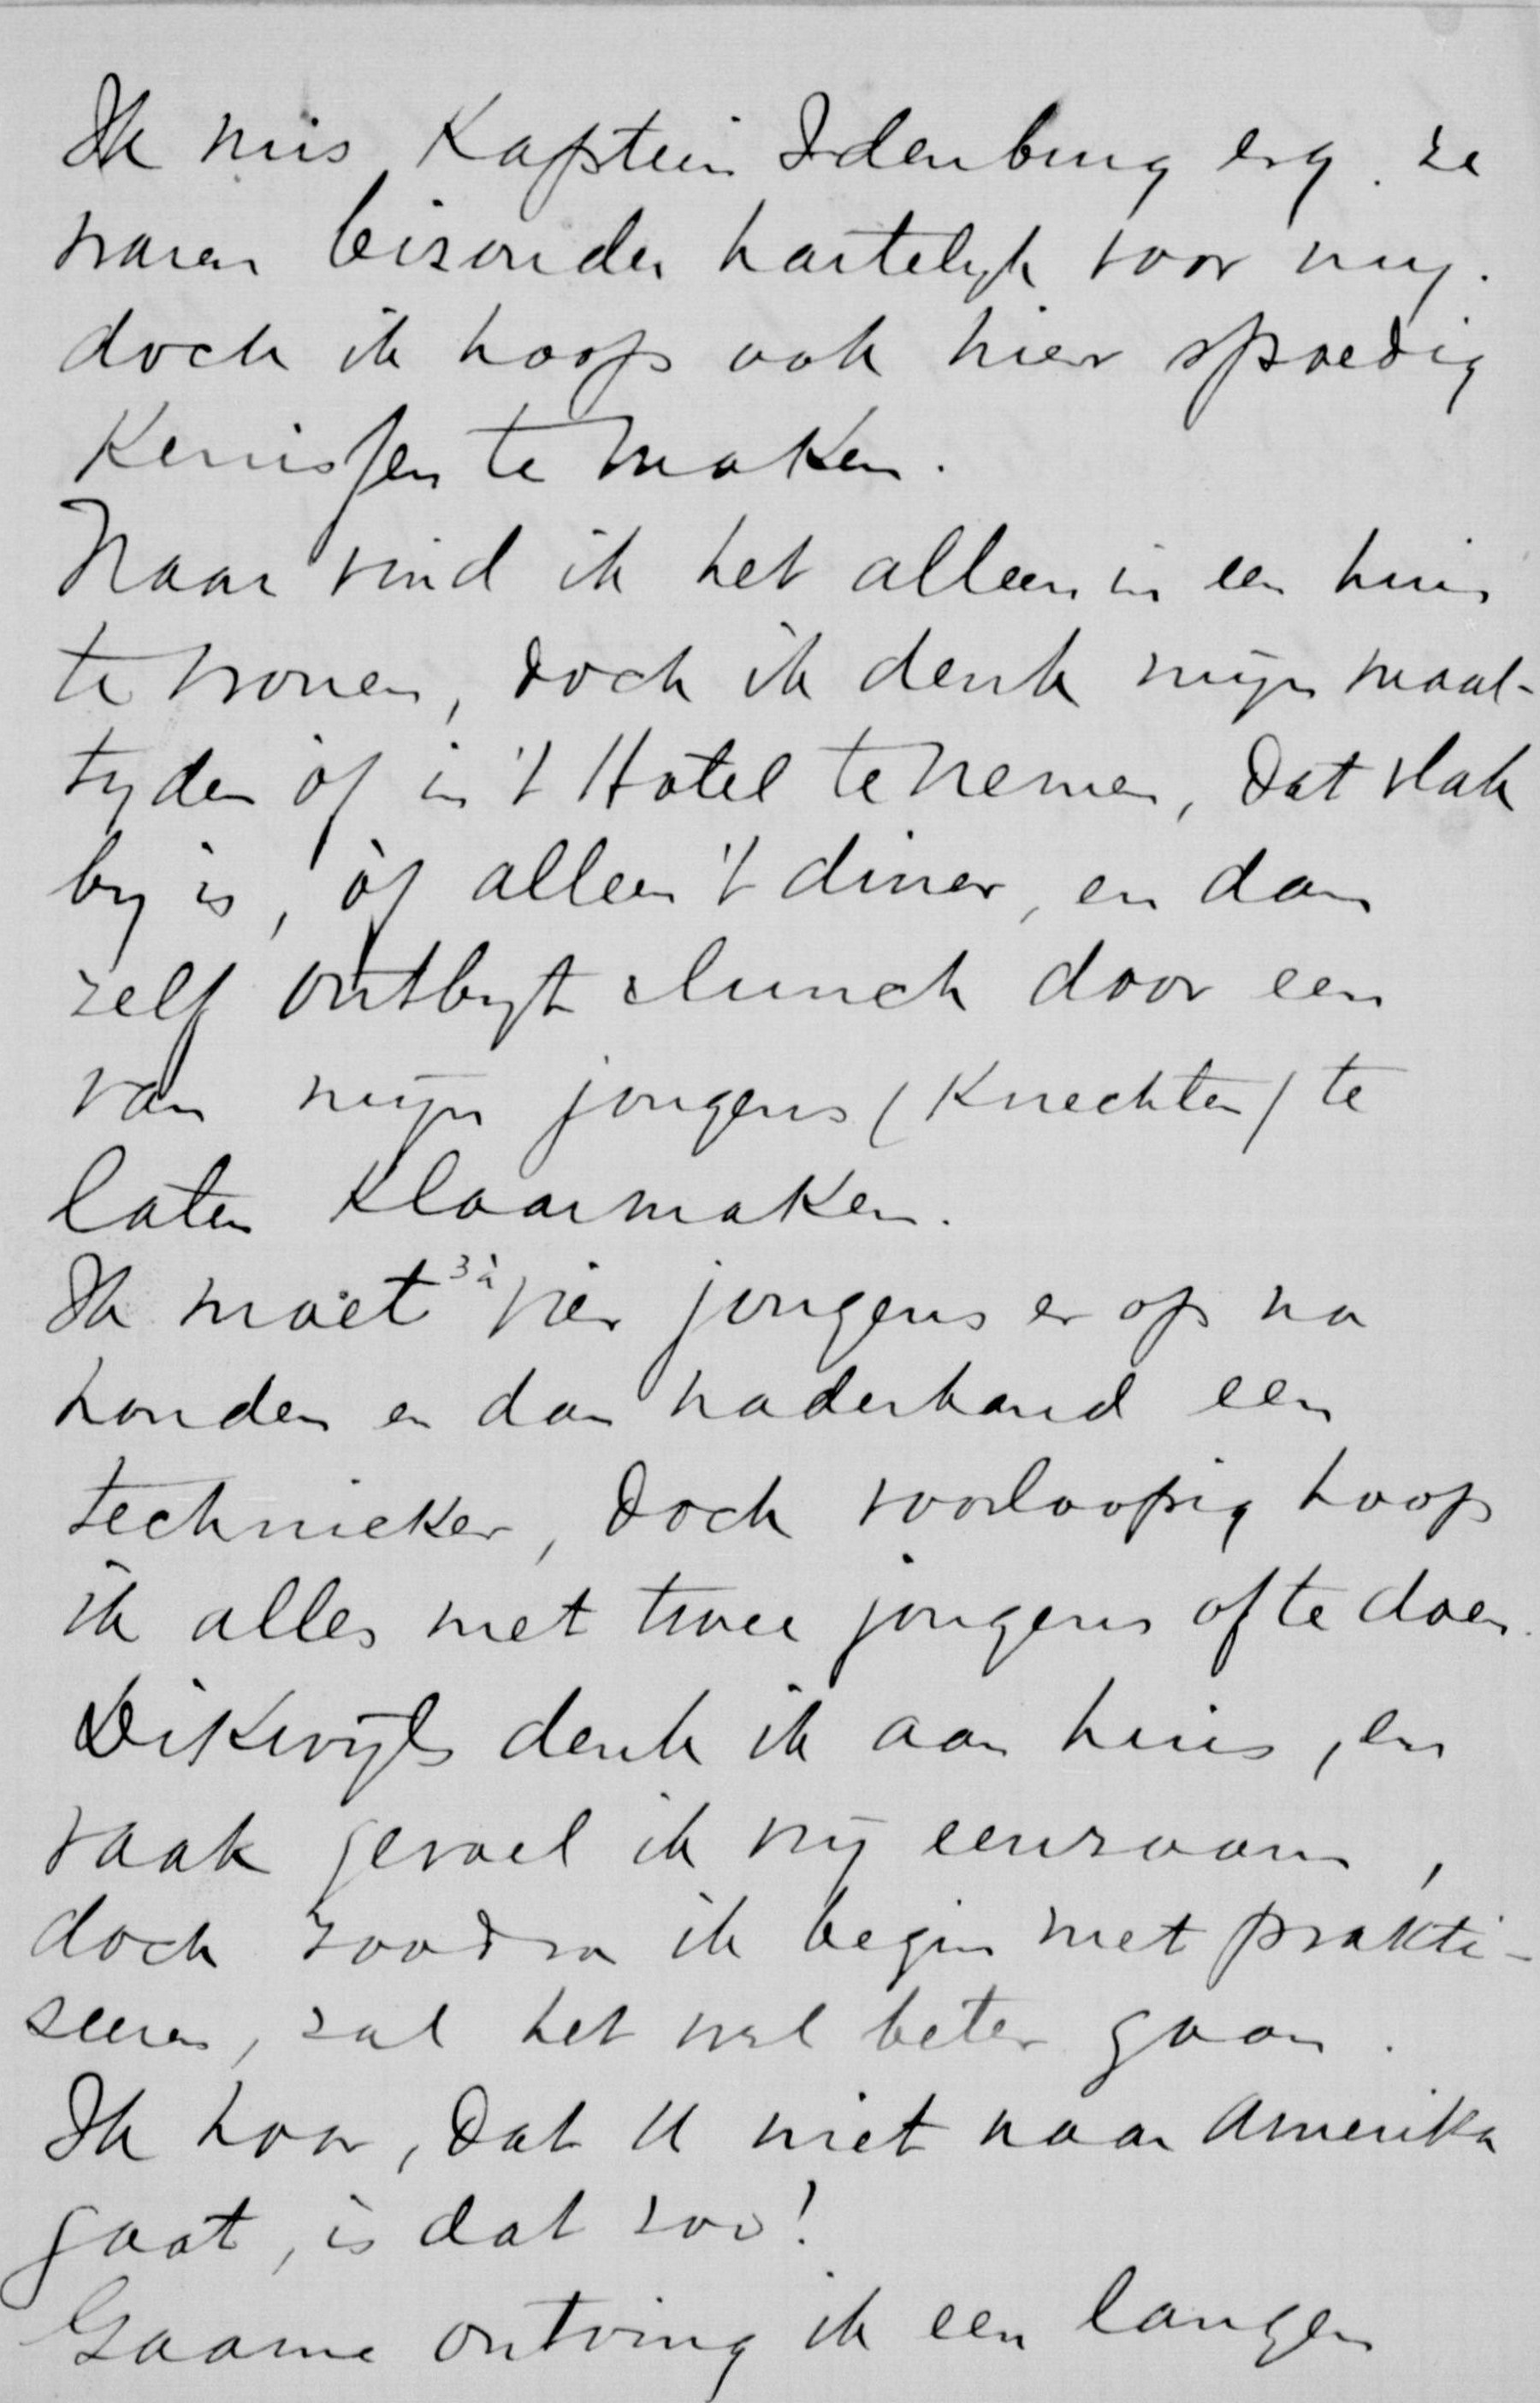 Ik mis Kaptein Idenburg erg. ze
waren bizonder hartelyk voor my.
doch ik hoop ook hier spoedig
Kenissen te maken.
Naar vind ik het alleen in een huis
te wonen, doch ik denk mijn maal-
tyden òf in 't Hotel te nemen, dat vlak
by is, òf alleen 't diner, en dan
zelf ontbyt & lunch door een
van mijn jongens (Knechten) te
laten klaarmaken.
Ik moet 3 à vier jongens er op na
houden en dan naderhand een
technieker, doch voorloopig hoop
ik alles met twee jongens af te doen.
Dikwijls denk ik aan huis, en
vaak gevoel ik mij eenzaam,
doch zoodra ik begin met prakti-
seeren, zal het wel beter gaan.
Ik hoor, dat U niet naar Amerika
gaat, is dat zoo!
Gaarne ontving ik een langen